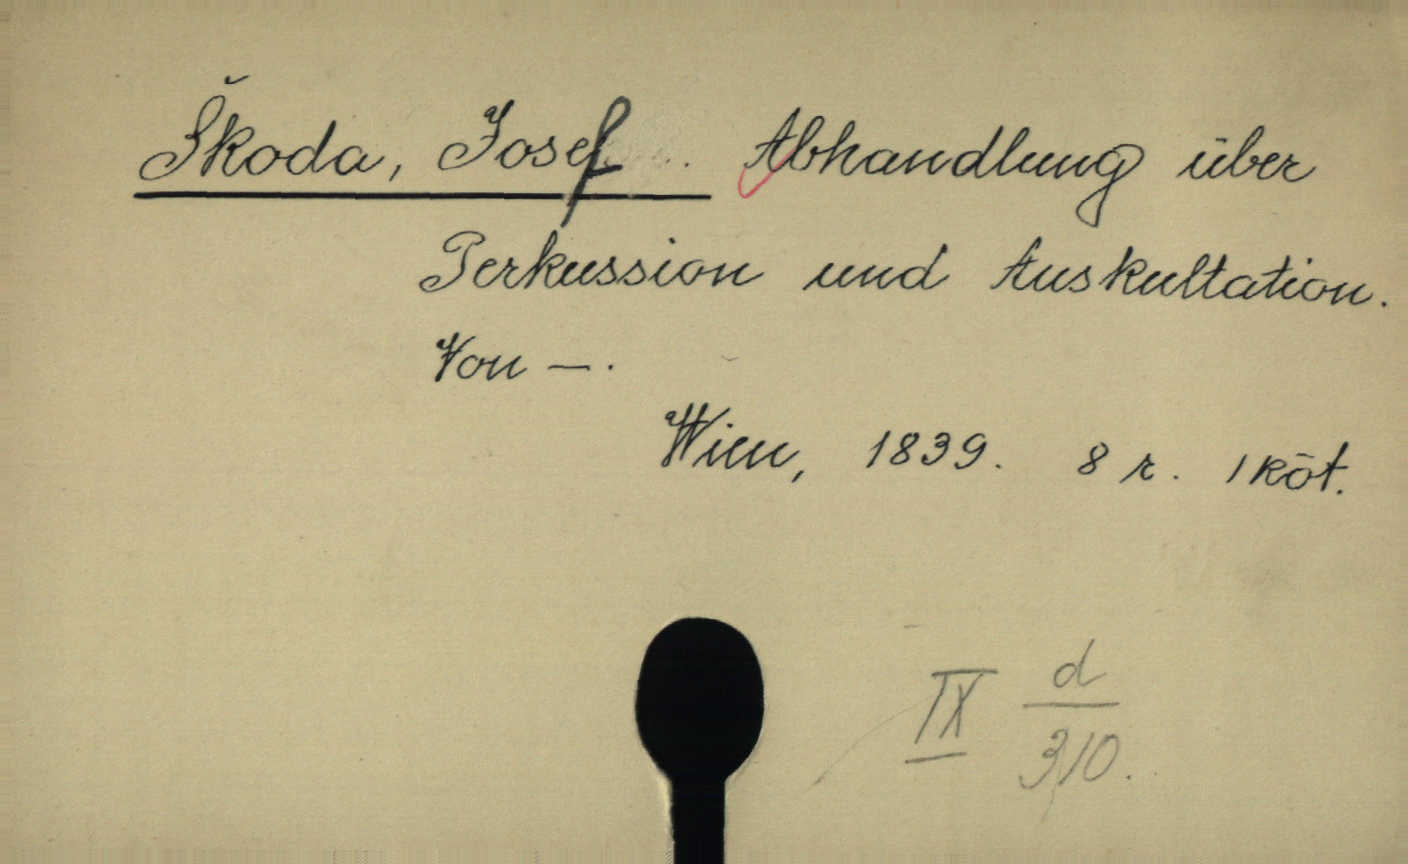 Škoda, Josef. Abhandlung über
Perkussion und Auskultation.
Von —.
Wien, 1839. 8 r. 1 köt.
IX d
310.